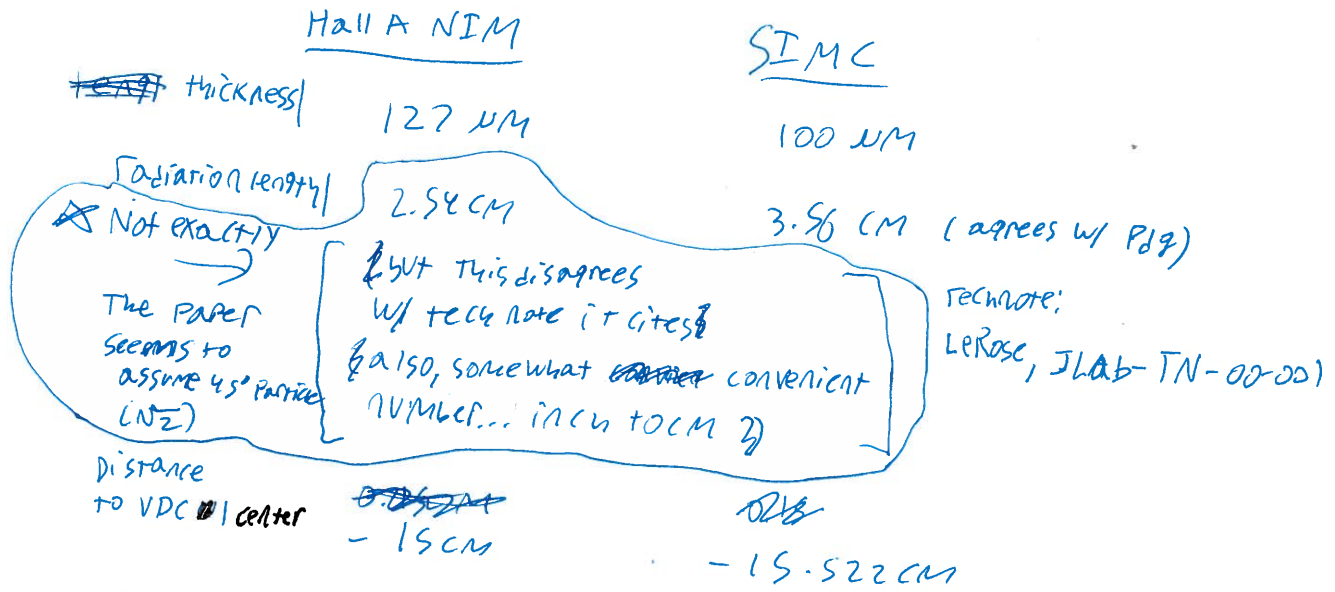 Hall A NIM
SIMC
thickness
127 µM
100 µM
radiation length
2.54 CM
3.56 CM (agrees w/ Pdg)
Not exactly
The paper
seems to
assume 45° particle
(√2)
(but This disagrees
w/ tech note it cites)
(also, somewhat convenient
number... inch to cm ?)
technote:
LeRose, JLab-TN-00-001
Distance
to VDC 1 center
- 15 CM
- 15.522 CM